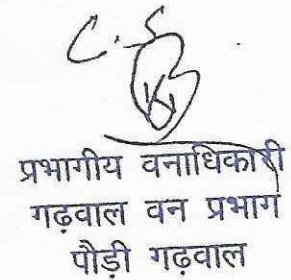 प्रभागीय वनाधिकारी
गढ़वाल वन प्रभाग
पौड़ी गढ़वाल